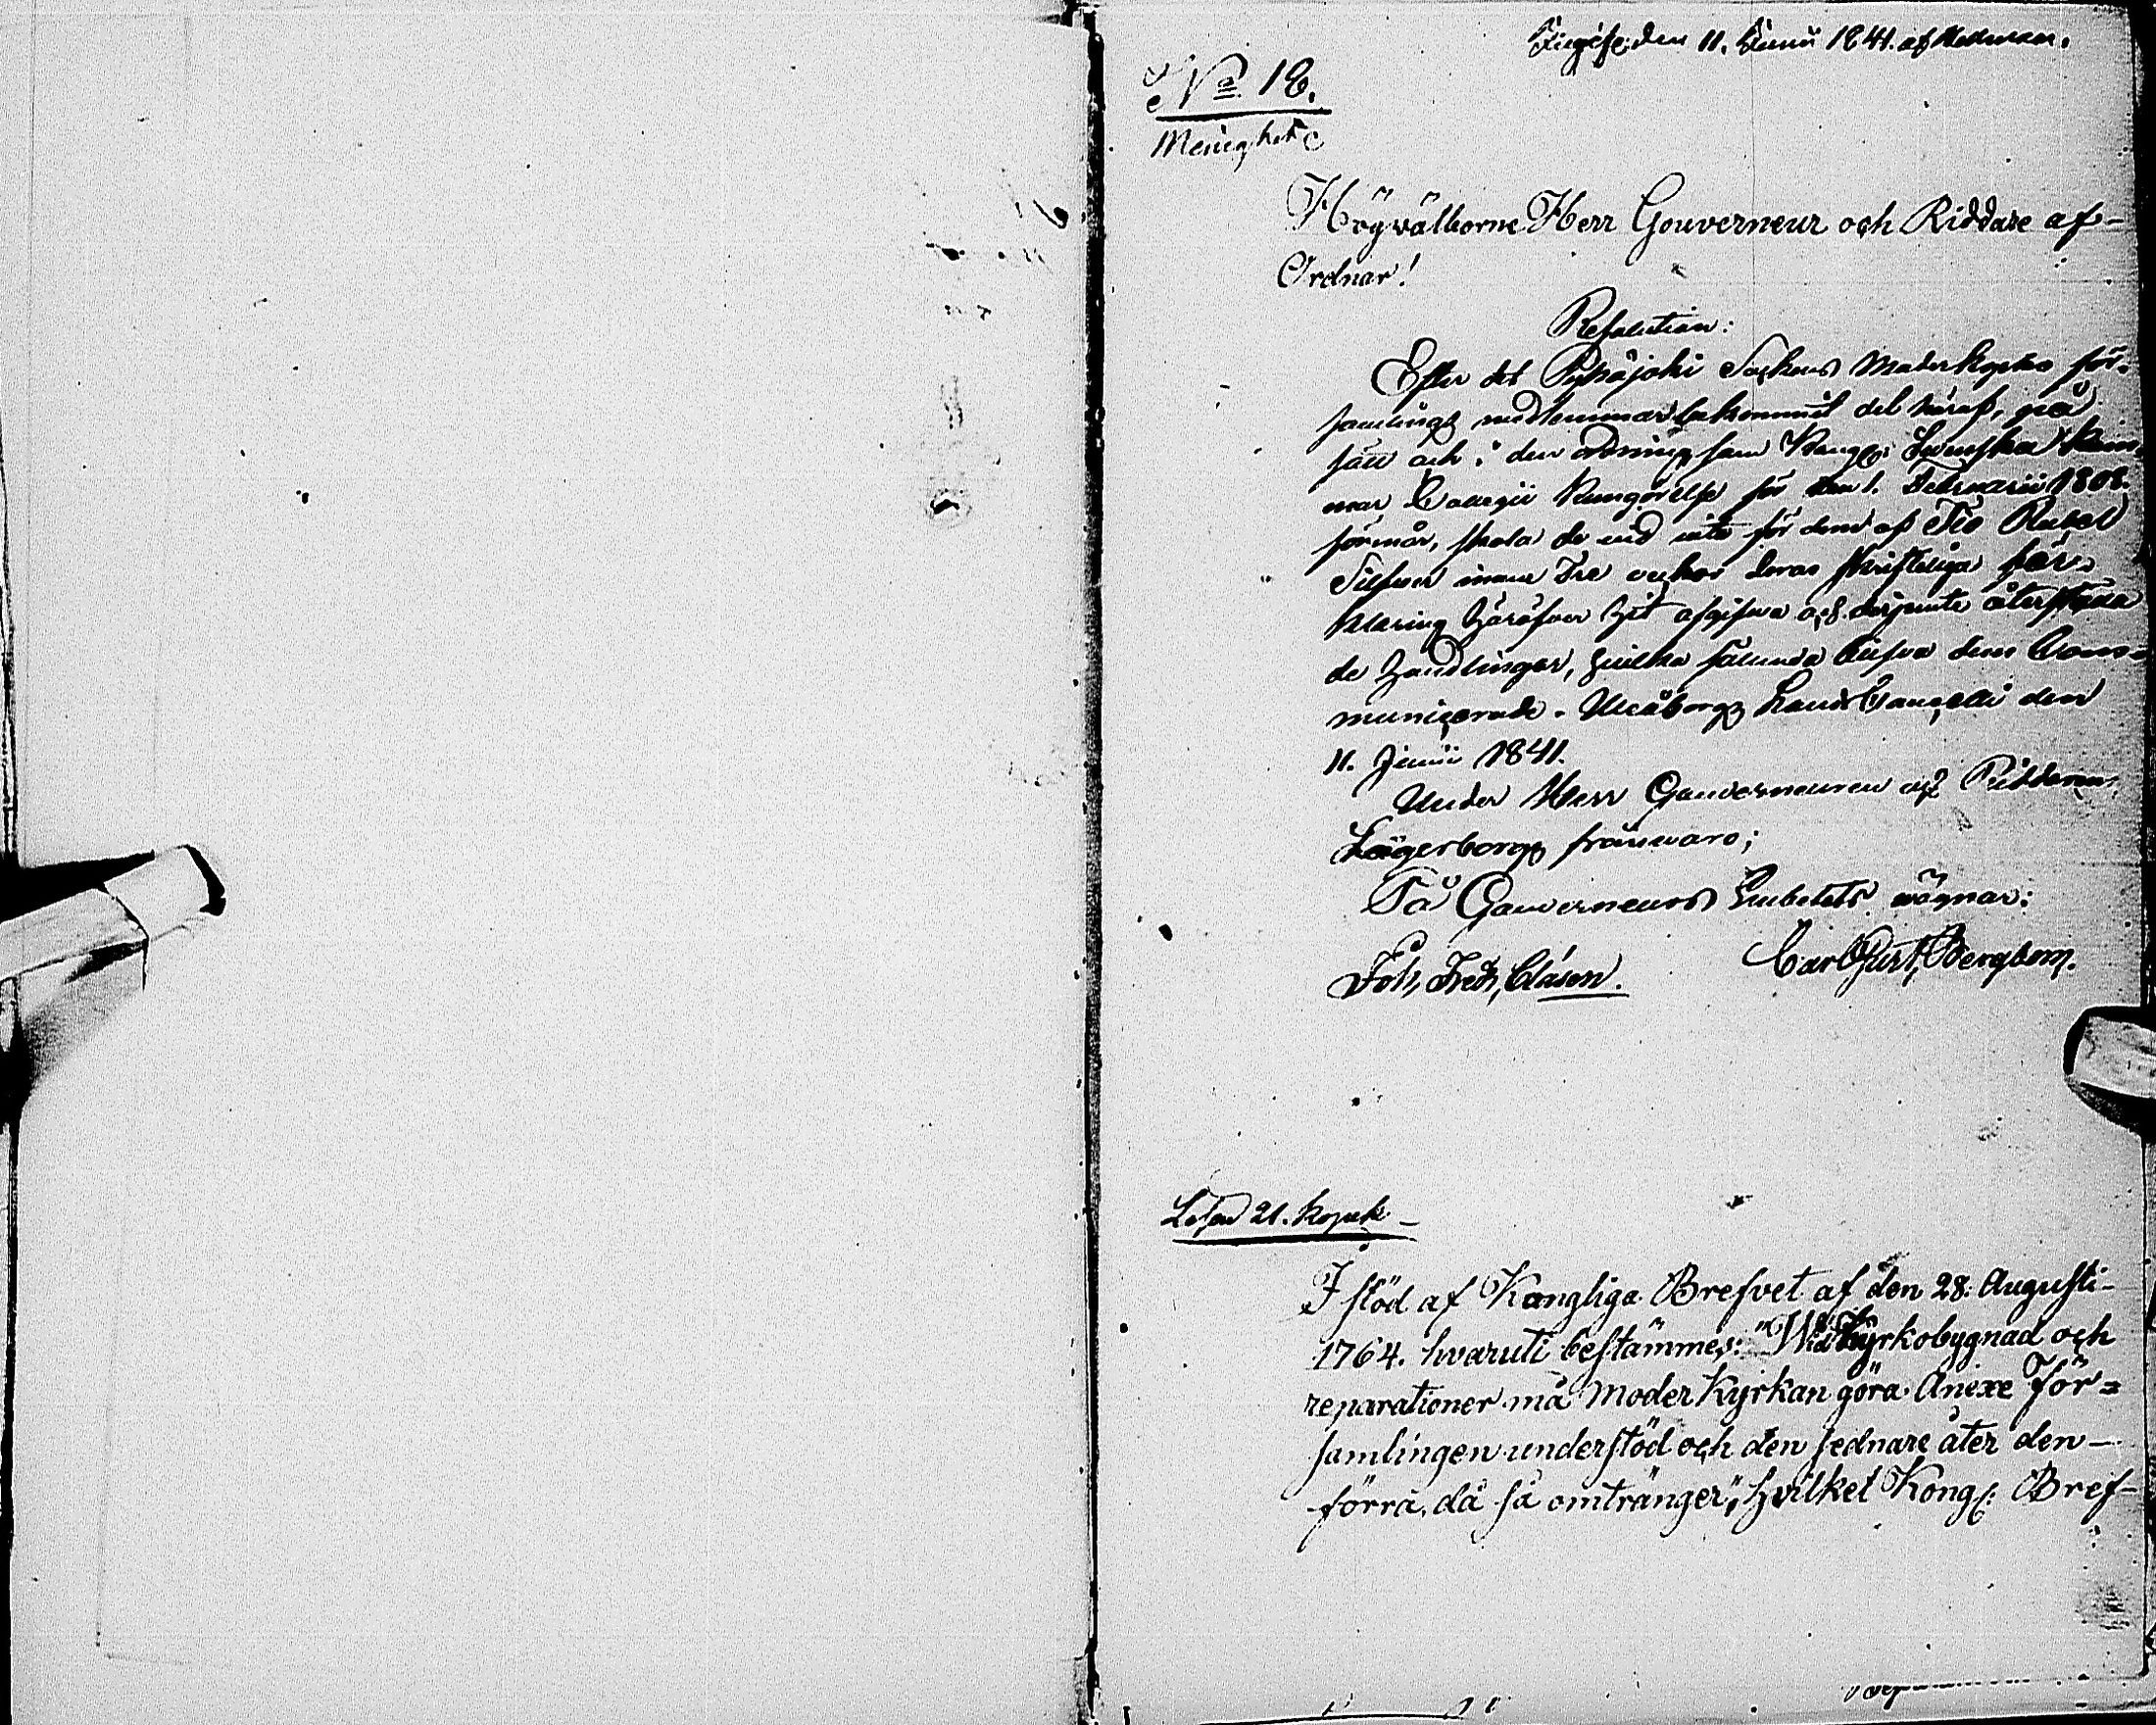 den 11. Junii 1841. af
No 18.
Menighet
Högvälborne Herr Gouverneur och Riddare af
Ordnar!
Resolution:
Efter det Pyhäjoki Sockens Moderkyrko för-
samlings medlemmar bekommit del häraf, på
sätt och i den ordning som Kongl: Svenska Kam-
mar Collegii Kungörelse för den 1. Februarii 1808.
förmår, skola de vid vite för dem af Tio Rubel
Silfver innom Tre veckor deras skriftliga för-
klaring häröfver hit afgifva och derjemte återställa
de handlingar, hvilka sålunda blifva dem Com-
municerade. Uleåborgs Lands Cancelli den
11. Junii 1841.
Under Herr Gouverneuren och Riddaren
Lagerborgs frånvaro;
På Gouverneurs Embetets vägnar:
Carl Gust. Bergbom.
Joh, Fredr, Clasen.
Lösen 21. kopek
I stöd af Kongliga Brefvet af den 28. Augusti
1764. hvaruti bestämmes: "Wid Kyrkobygnad och
reparationer må Moder Kyrkan göra Anexe För-
samlingen understöd och den sednare åter den
förra, då så omtränger", hvilket Kongl: Bref